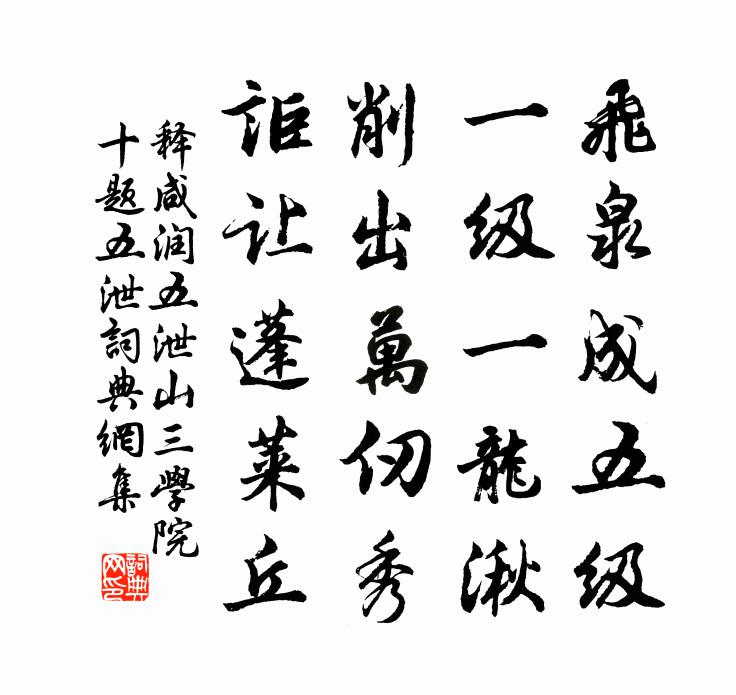 飛泉成五级
一级一龍湫
削出萬仞秀
詎让蓬莱丘
释咸润五泄山三學院
十题五泄詞典網集
詞典
网印